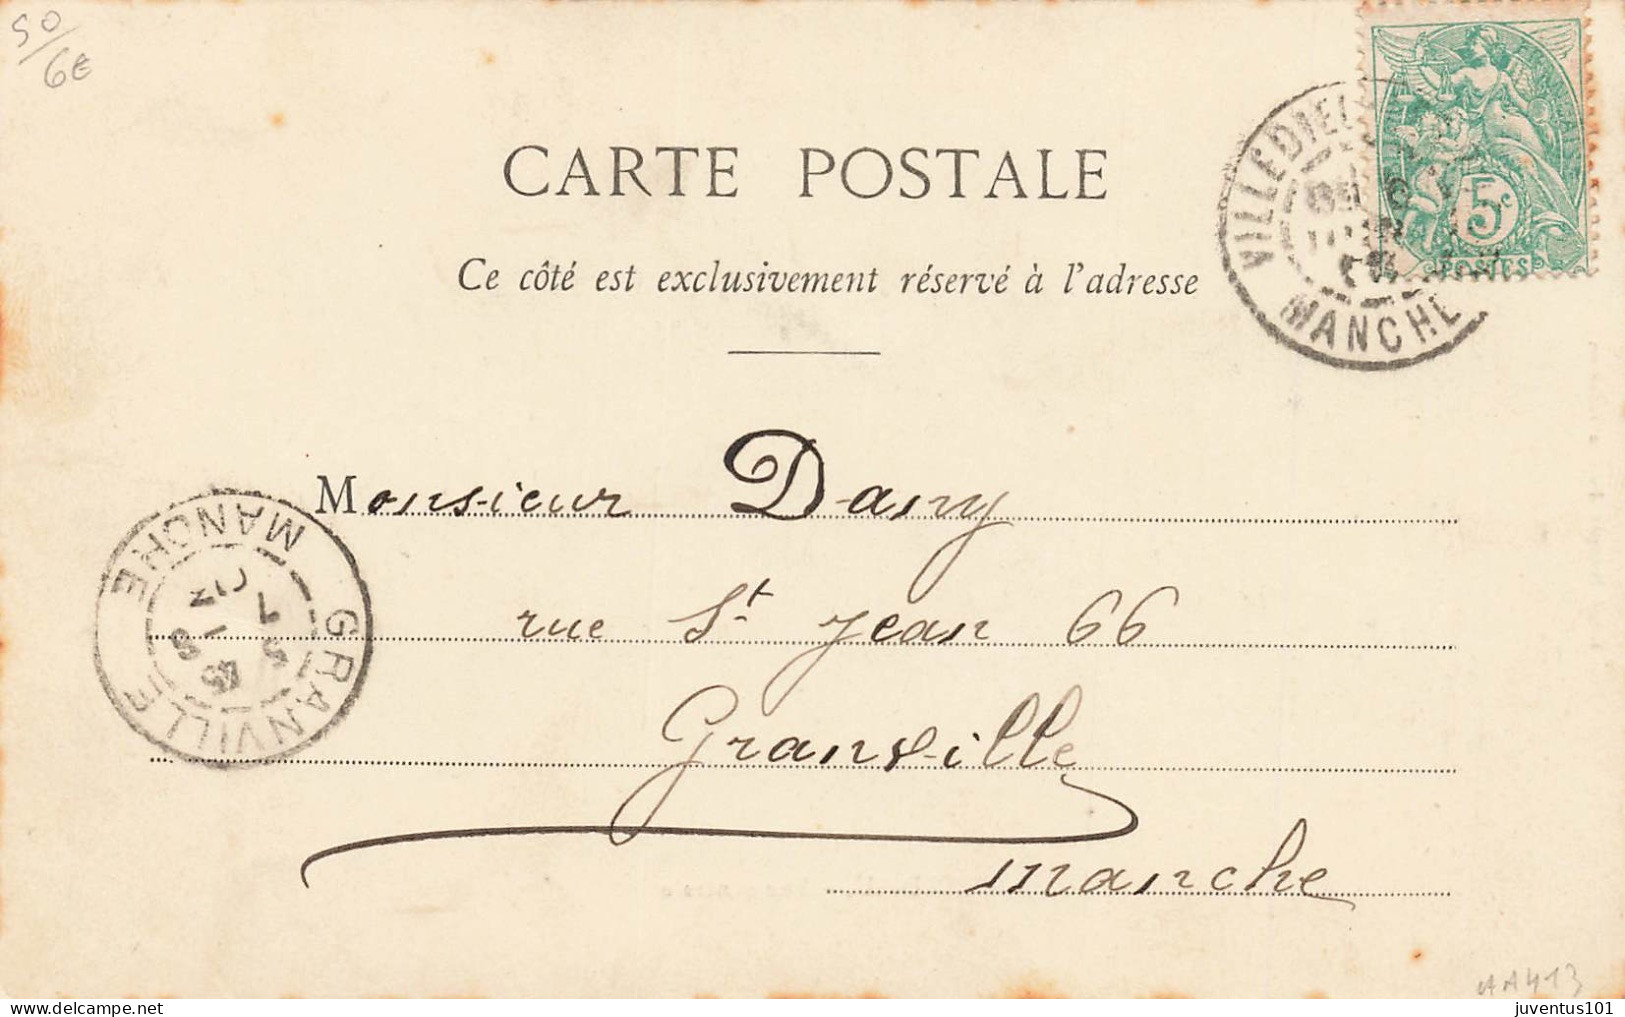 50/6€
CARTE POSTALE
Ce côté est exclusivement réservé à l'adresse
VILLEDIEU
MANCHE
5c
POSTES
Monsieur Dany
rue St Jean 66
Granville
Manche
GRANVILLE
MANCHE
AA413
juventus101